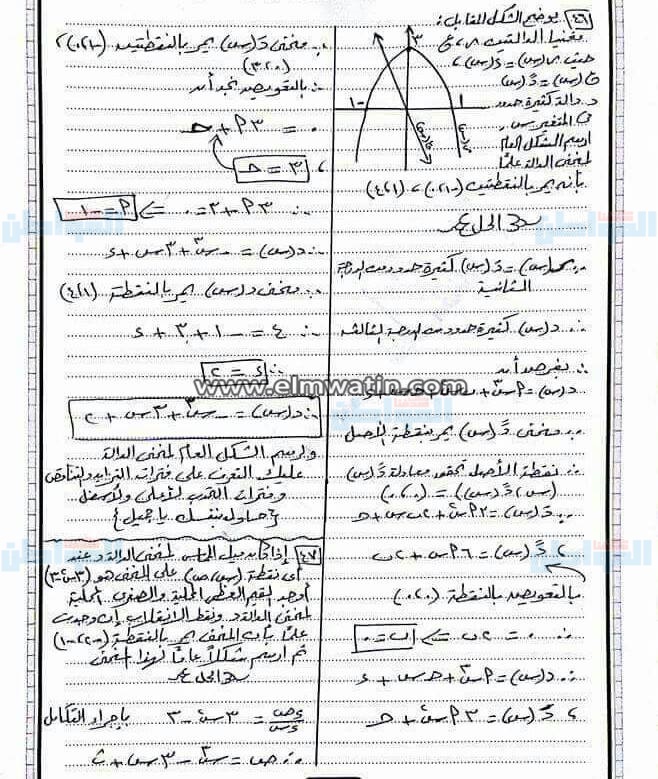 ٤٦ يوضح الشكل المقابل:
منحنيا الدالتين ر، ع
حيث ر(س) = دَ(س)،
ع(س) = دً(س)
د. دالة كثيرة حدود
في المتغير س.
ارسم الشكل العام
لمنحنى الدالة علمًا
بأنه يمر بالنقطتين (-١، ٠)، (١، ٤)
٣
١
-١
الحل
∵ ر(س) = دَ(س) كثيرة حدود من الدرجة
الثانية
∴ د(س) كثيرة حدود من الدرجة الثالثة
بفرض أن
د(س) = ٢س٣ +
∵ منحنى دً(س) يمر بنقطة الأصل
∴ نقطة الأصل تحقق معادلة دً(س)
(س، دً(س)) = (٠، ٠)
∵ دَ(س) = ٣أس٢ + ٢ب س + حـ
، دً(س) = ٦أس + ٢ب
بالتعويض بالنقطة (٠، ٠)
∴ ٠ = ٢ب ⇐ ب = ٠
∴ د(س) = أس٣ + حـ س + ء
، دَ(س) = ٣أس٢ + حـ
∵ منحنى دَ(س) يمر بالنقطتين (-١، ٠)،
(٠، ٣)
∴ بالتعويض نجد أن
٠ = ٣أ + حـ
، حـ = ٣
∴ ٣أ + ٣ = ٠ ⇐ أ = -١
∴ د(س) = -س٣ + ٣س + ء
∵ منحنى د(س) يمر بالنقطة (١، ٤)
∴ ٤ = -١ + ٣ + ء
∴ ء = ٢
www.elmwatin.com
∴ د(س) = -س٣ + ٣س + ٢
ولرسم الشكل العام لمنحنى الدالة
عليك التعرف على فترات التزايد والتناقص
وفترات التحدب لأعلى ولأسفل
{حاول بنفسك يا جميل}
٤٧ إذا كان ميل المماس لمنحنى الدالة د عند
أي نقطة (س، ص) على المنحنى هو (٣س٢ - ٣)
أوجد القيم العظمى المحلية والصغرى المحلية
لمنحنى الدالة د ونقط الانقلاب إن وجدت
علمًا بأن المنحنى يمر بالنقطة
ثم ارسم شكلًا عامًا لهذا المنحنى
الحل
ءص/ءس = ٣س٢ - ٣ بإجراء التكامل
∴ ص = س٣ - ٣س + ث
المواطن